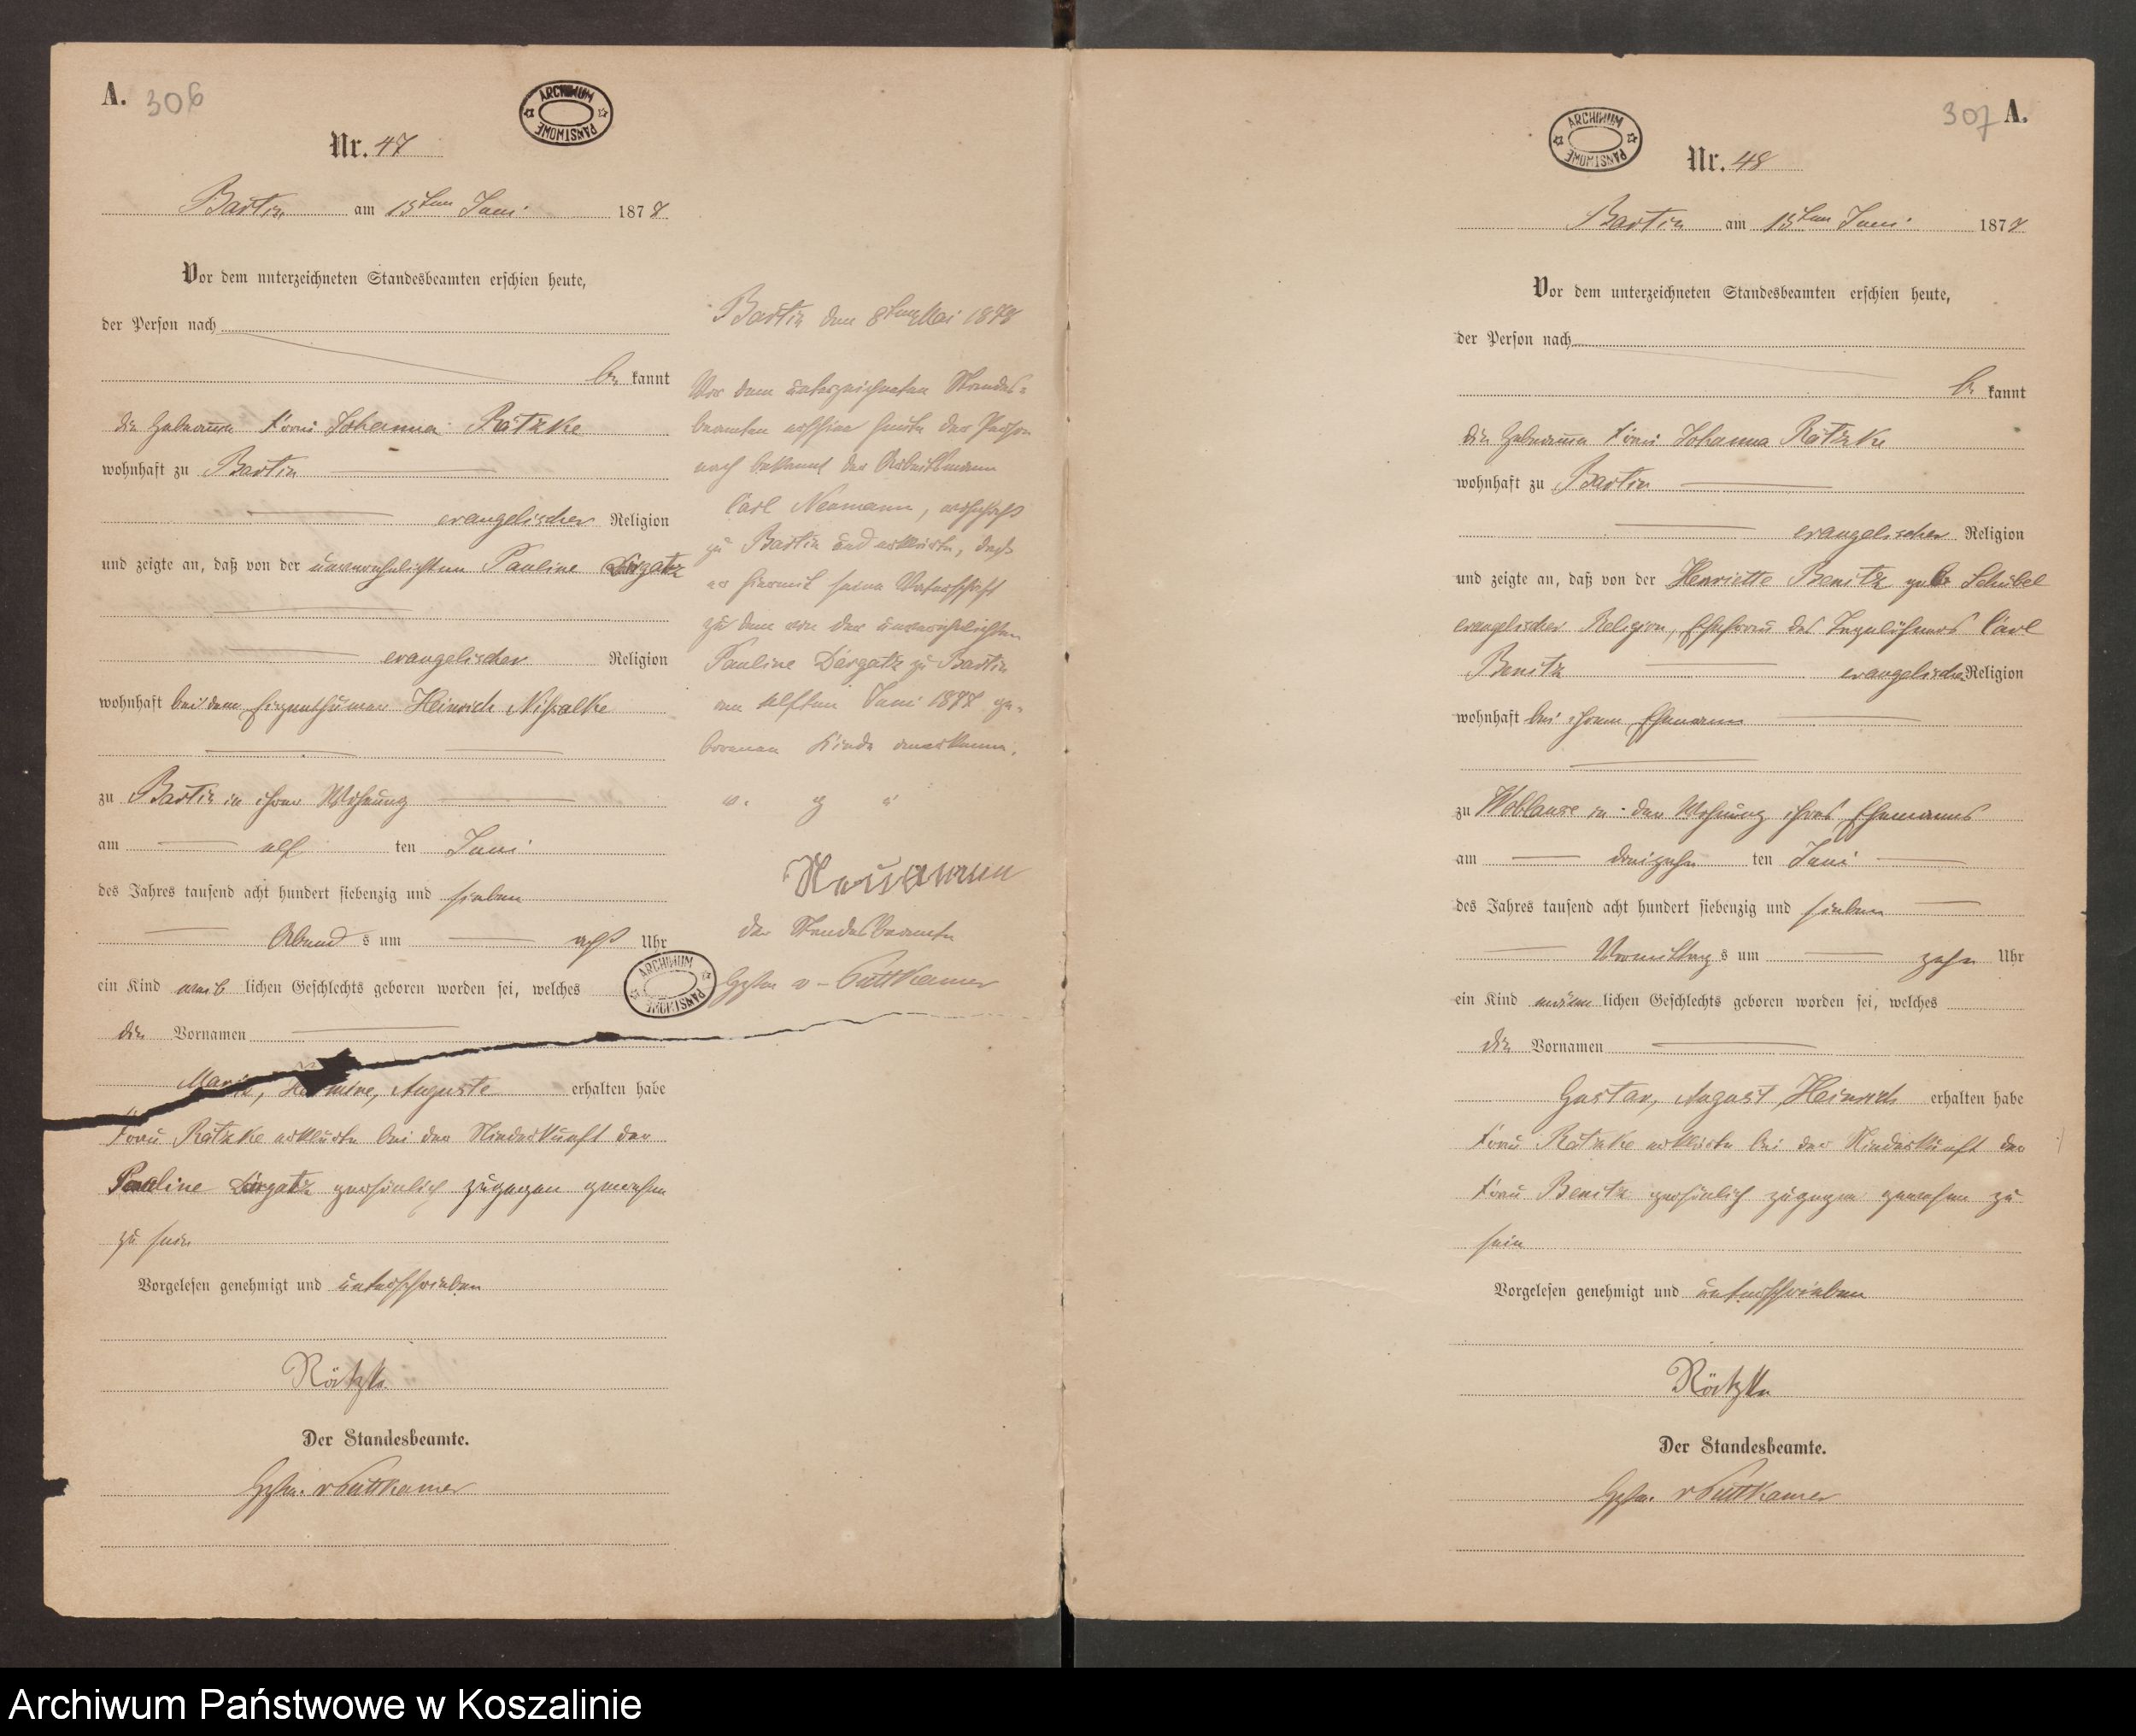 A. 306
ARCHIWUM PAŃSTWOWE
Nr. 47
Bartin am 15ten Juni 1877.
Vor dem unterzeichneten Standesbeamten erschien heute,
der Person nach
be kannt
die Hebamme Frau Johanna Rätzke
wohnhaft zu Bartin
evangelischer Religion
und zeigte an, daß von der unverehelichten Pauline Därgatz
evangelischer Religion
wohnhaft bei dem Eigenthümer Heinrich
zu Bartin in ihrer Wohnung
am elf ten Juni
des Jahres tausend acht hundert siebenzig und sieben
Abend s um acht Uhr
ein Kind weib lichen Geschlechts geboren worden sei, welches
die Vornamen
Marie, Hermine, Auguste erhalten habe
Frau Rätzke erklärte bei der Niederkunft der
Pauline Därgatz persönlich zugegen gewesen
zu sein
Vorgelesen genehmigt und unterschrieben
Rätzke
Der Standesbeamte.
v Puttkamer
Bartin den 8ten Mai 1878
Vor dem unterzeichneten Standes-
beamten erschien heute der Person
nach bekannt der Arbeitsmann
Carl Neumann, wohnhaft
zu Bartin und erklärte, daß
er hiermit seine Vaterschaft
zu dem von der unverehelichten
Pauline Därgatz zu Bartin
am elften Juni 1877 ge-
borenen Kinde anerkenne.
v. g. u.
Neumann
der Standesbeamte
v. Puttkamer
ARCHIWUM PAŃSTWOWE
307 A.
ARCHIWUM PAŃSTWOWE
Nr. 48
Bartin am 15ten Juni 1877
Vor dem unterzeichneten Standesbeamten erschien heute,
der Person nach
be kannt
die Hebamme Frau Johanna Rätzke
wohnhaft zu Bartin
evangelischer Religion
und zeigte an, daß von der Henriette Benitz geb. Schübel
evangelischer Religion, Ehefrau des Tagelöhners Carl
Benitz evangelischer Religion
wohnhaft bei ihrem Ehemann
zu Woblanse in der Wohnung ihres Ehemannes
am dreizehn ten Juni
des Jahres tausend acht hundert siebenzig und sieben
Vormittag s um zehn Uhr
ein Kind männ lichen Geschlechts geboren worden sei, welches
die Vornamen
Gustav, August, Heinrich erhalten habe
Frau Rätzke erklärte bei der Niederkunft der
Frau Benitz persönlich zugegen gewesen zu
sein
Vorgelesen genehmigt und unterschrieben
Rätzke
Der Standesbeamte.
v Puttkamer
Archiwum Państwowe w Koszalinie